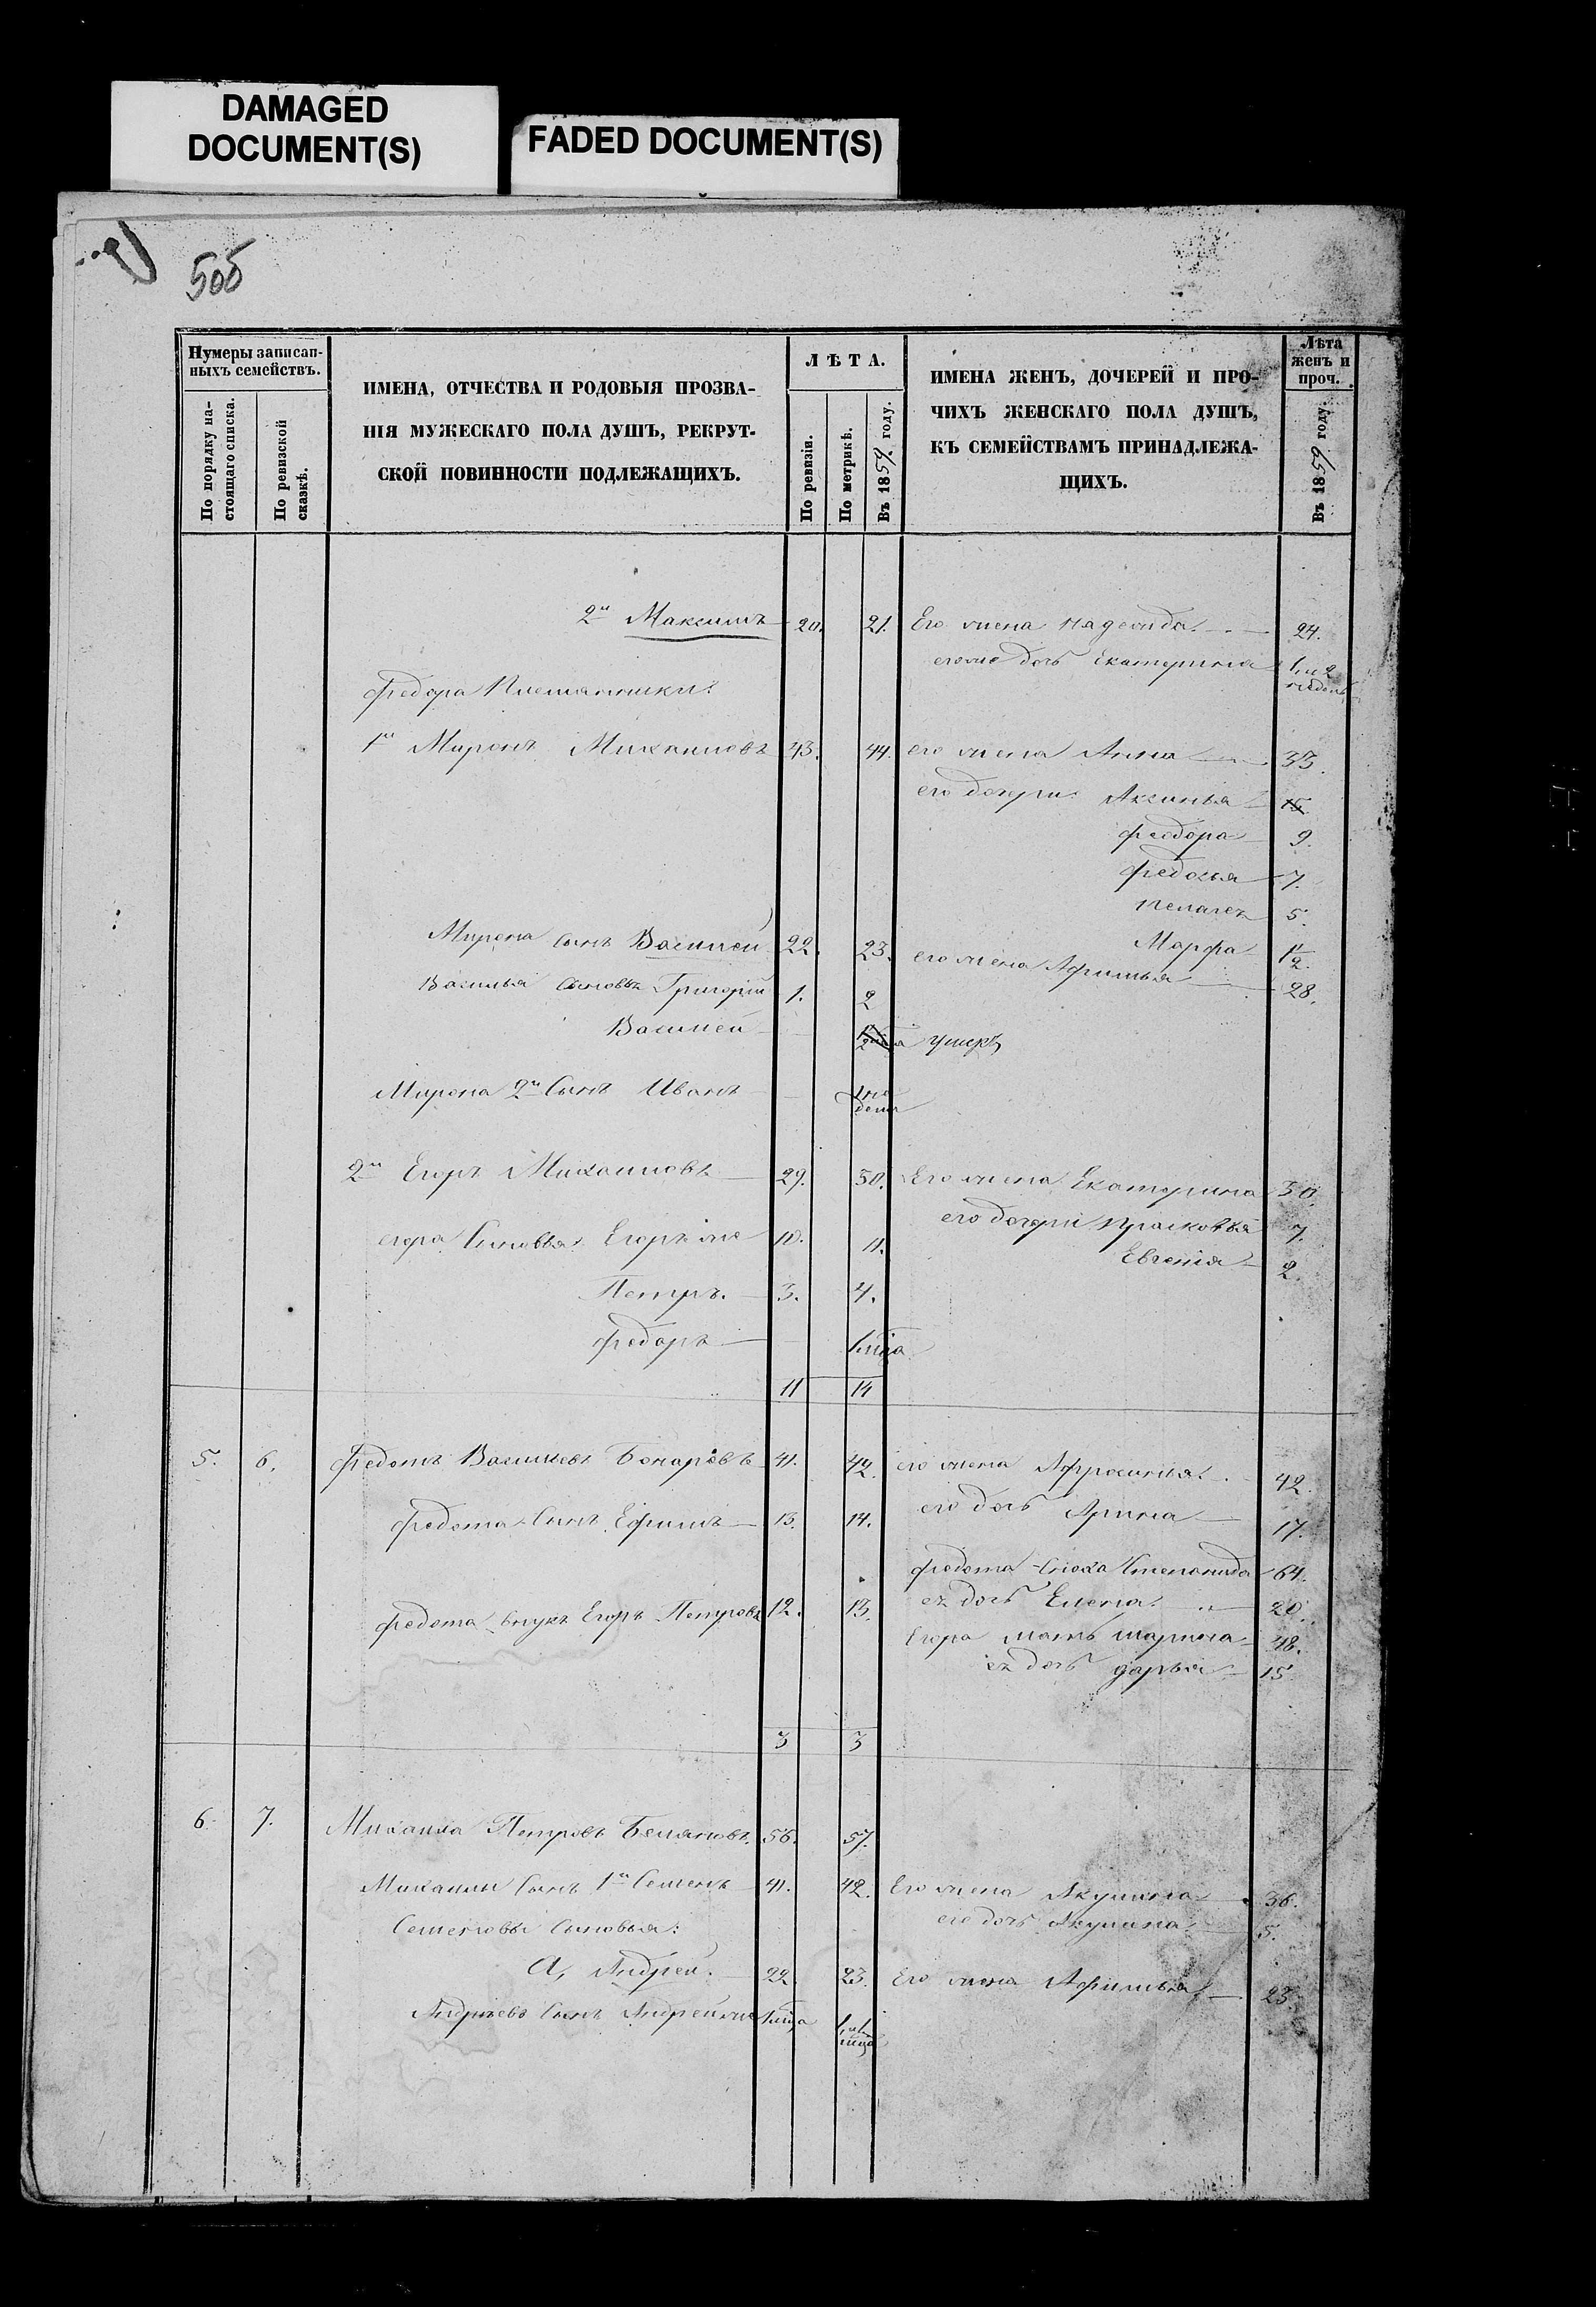 DAMAGED
DOCUMENT(S)
FADED DOCUMENT(S)
506
Нумеры записан-
ныхъ семействъ.
По порядку на-
стоящаго списка.
По ревизской
сказкѣ.
ИМЕНА, ОТЧЕСТВА И РОДОВЫЯ ПРОЗВА-
НІЯ МУЖЕСКАГО ПОЛА ДУШЪ, РЕКРУТ-
СКОЙ ПОВИННОСТИ ПОДЛЕЖАЩИХЪ.
ЛѢТА.
По ревизіи.
По метрикѣ.
Въ 1859 году.
ИМЕНА ЖЕНЪ, ДОЧЕРЕЙ И ПРО-
ЧИХЪ ЖЕНСКАГО ПОЛА ДУШЪ,
КЪ СЕМЕЙСТВАМЪ ПРИНАДЛЕЖА-
ЩИХЪ.
Лѣта
женъ и
проч.
Въ 1859 году.
2й Максимъ 20. 21. Его жена Надежда 24.
его же дочь Екатерина 1. и 2 недели
Федора Племянники:
1й Миронъ Михаиловъ 43. 44. его жена Анна 33.
его дочери: Аксинья 15
Федора 9.
Федосья 7.
Пелагея 5.
Марфа 1/2.
Мирона сынъ Василей 22. 23. его жена Афимья 28.
Василья Сыновья Григорій 1. 2
Василей умеръ
Мирона 2й Сынъ Иванъ
2й Егоръ Михаиловъ 29. 30. Его жена Екатерина 30.
его дочери Прасковья 7.
егора Сыновья: Егоръ же 10. 11.
Евгенія 2.
Петръ. 3. 4.
Федоръ 1. мца
11 14
5. 6. Федотъ Васильевъ Бочаровъ 41. 42. его жена Афросинья 42.
его дочь Арина 17.
Федота Сынъ Ефимъ 13. 14.
Федота Сноха Степанида 64.
ея дочь Елена 20.
Федота внукъ Егоръ Петровъ 12. 13.
Егора мать марина 48.
ея дочь дарья 15
3 3
6. 7. Михаила Петровъ Беляновъ. 56. 57.
Михаилы Сынъ 1й Семенъ 41. 42. Его жена Акулина 36.
его дочь Акулина 5.
Семеновы Сыновья:
А, Андрей. 22. 23. Его жена Афимья 23.
Андреевъ Сынъ Андрей же 1 мца 1. и 1 мца